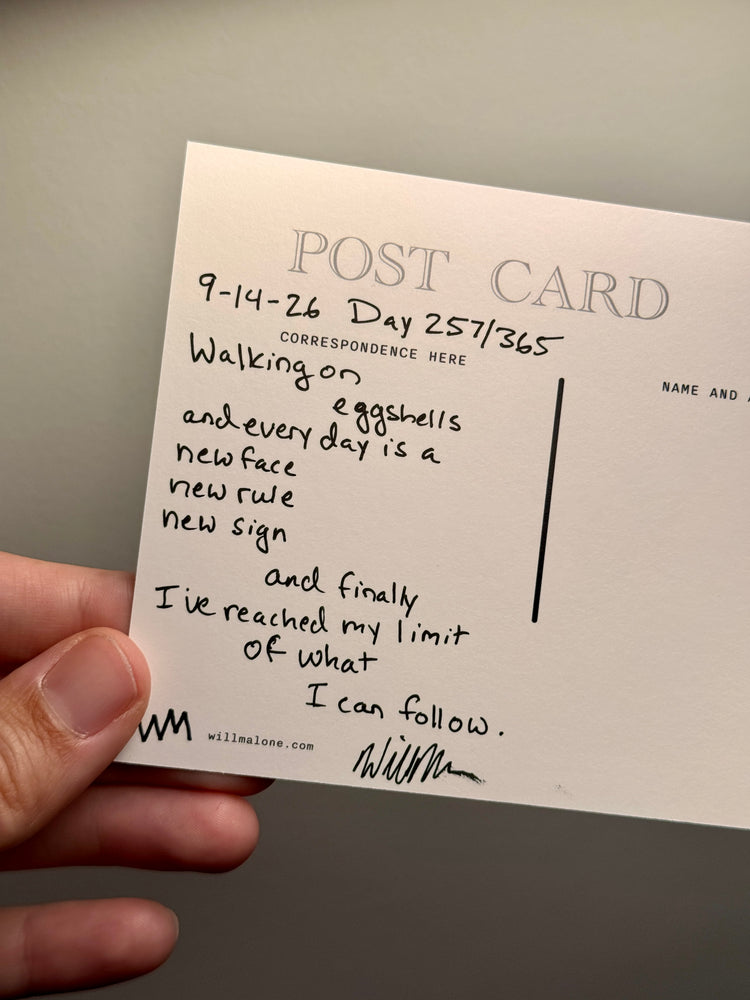 POST CARD
9-14-26 Day 257/365
CORRESPONDENCE HERE
NAME AND
Walking on
eggshells
and every day is a
new face
new rule
new sign
and finally
I've reached my limit
of what
I can follow.
WM
willmalone.com
WillM